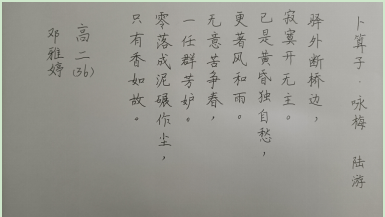 卜算子·咏梅 陆游
驿外断桥边，
寂寞开无主。
已是黄昏独自愁，
更著风和雨。
无意苦争春，
一任群芳妒。
零落成泥碾作尘，
只有香如故。
高二(36)
邓雅婷